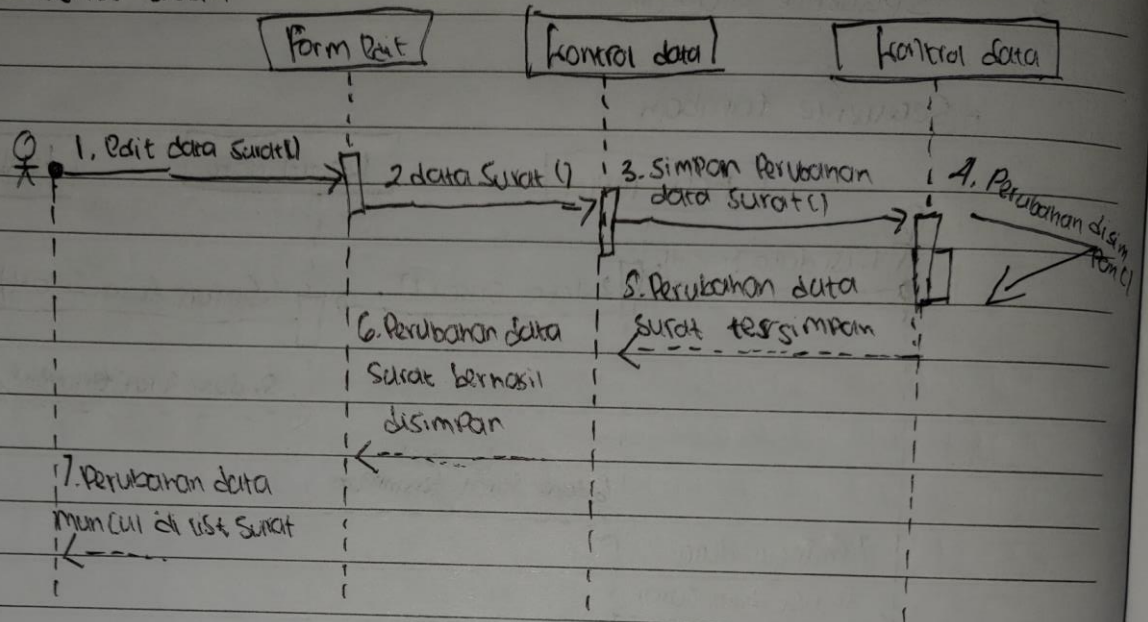 Form Edit
kontrol data
kontrol data
1. Edit data surat()
2 data Surat ()
3. Simpan Perubahan
data surat()
4. Perubahan disim
Pan()
5. Perubahan data
surat tersimpan
6. Perubahan data
Surat berhasil
disimpan
7. Perubahan data
muncul di list surat